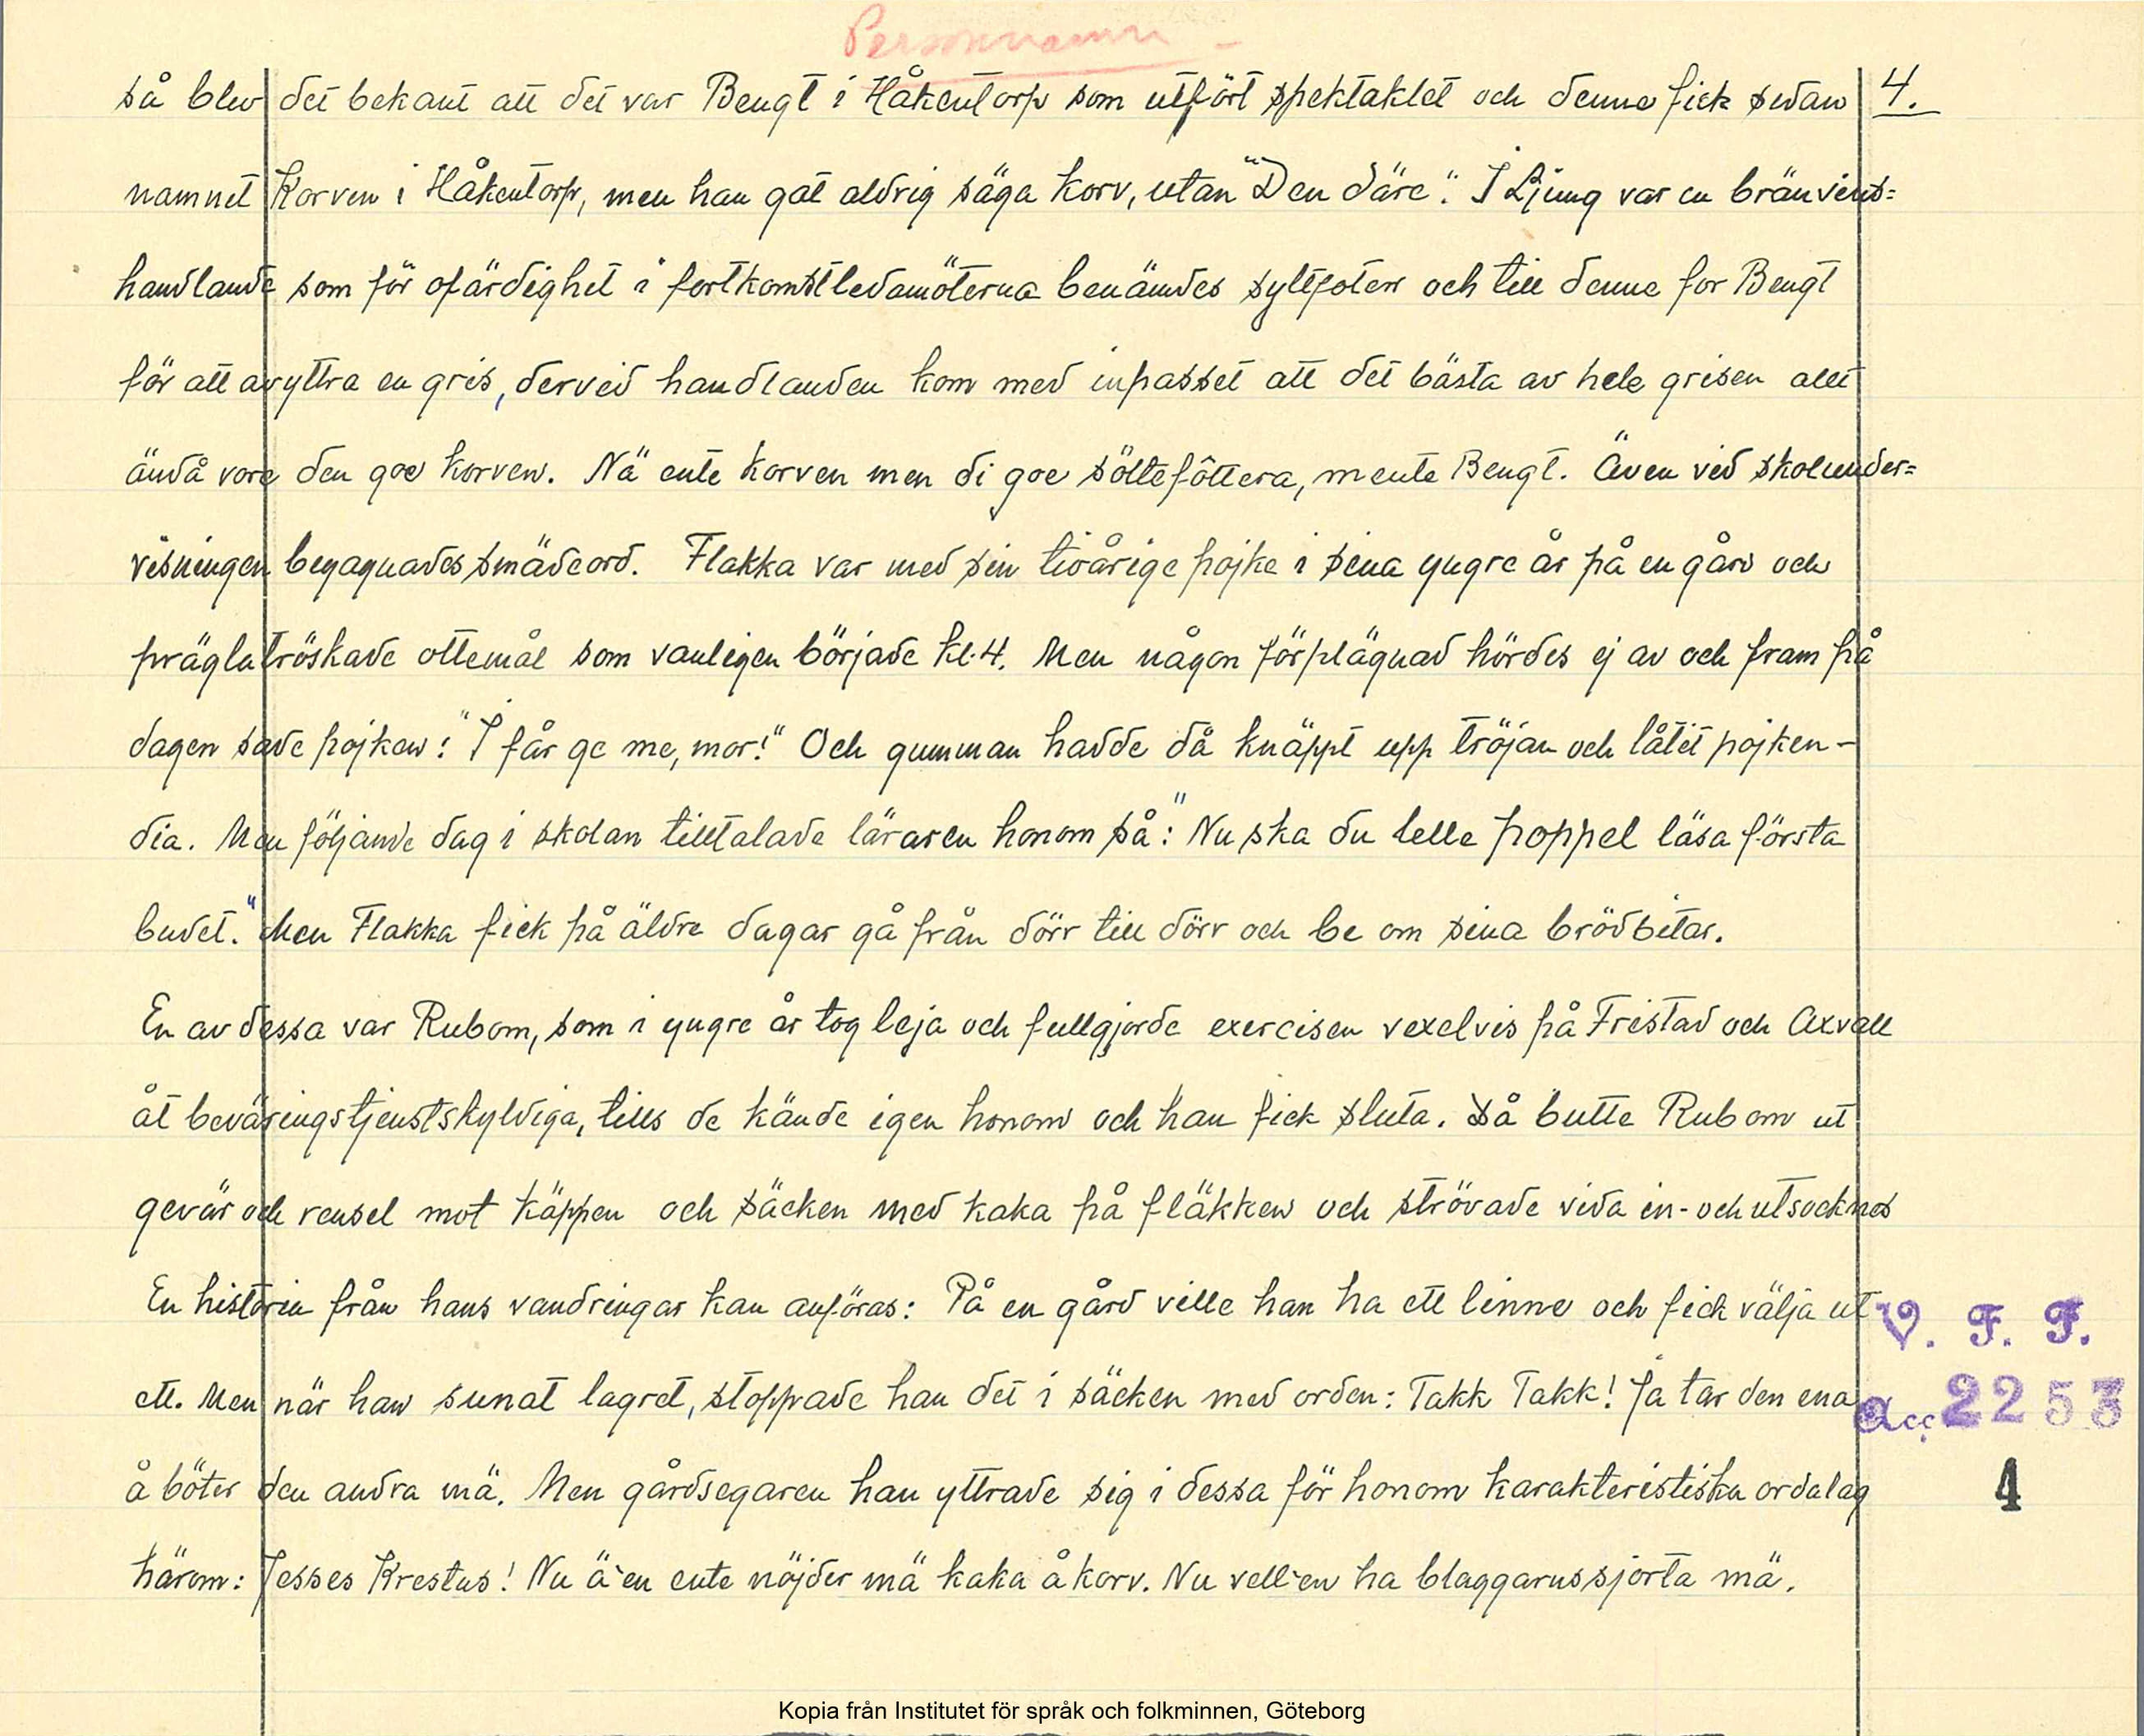 Personnamn -
så blev det bekant att det var Bengt i Håkentorp som utfört spektaklet och denne fick sedan 4.
namnet Korven i Håkentorp, men han gat aldrig säga korv, utan "Den däre". I Ljung var en bränvins=
handlande som för ofärdighet i fortkomstledamöterna benämdes syltfoten och till denne for Bengt
för att avyttra en gris, dervid handlanden kom med inpasset att det bästa av hele grisen allt
ändå vore den goe korven. Nä ente korven men di goe söltefôttera, mente Bengt. Även vid skolunder=
visningen begagnades smädeord. Flakka var med sin tioårige pojke i sina yngre år på en gård och
präglatröskade ottemål som vanligen började kl. 4. Men någon förplägnad hördes ej av och fram på
dagen sade pojken: "I får ge me, mor!" Och gumman hadde då knäppt upp tröjan och låtit pojken -
dia. Men följande dag i skolan tilltalade läraren honom så: "Nu ska du lelle poppel läsa första
budet." Men Flakka fick på äldre dagar gå från dörr till dörr och be om sina brödbitar.
En av dessa var Rubom, som i yngre år tog leja och fullgjorde exercisen vexelvis på Fristad och Axvall
åt beväringstjenstskyldiga, tills de kände igen honom och han fick sluta. Så bytte Rubom ut
gevär och rensel mot käppen och säcken med kaka på fläkken och strövade vida in- och utsocknes
En historia från hans vandringar kan anföras: På en gård ville han ha ett linne och fick välja ut
ett. Men när han sunat lagret, stoppade han det i säcken med orden: Takk Takk! Ja tar den ena
å böter den andra mä. Men gårdsegaren han yttrade sig i dessa för honom karakteristiska ordalag
härom: Jesses Krestus! Nu ä'en ente nöjder mä kaka å korv. Nu vell'en ha blaggarnssjorta mä.
V. F. F.
Acc. 2253
4
Kopia från Institutet för språk och folkminnen, Göteborg